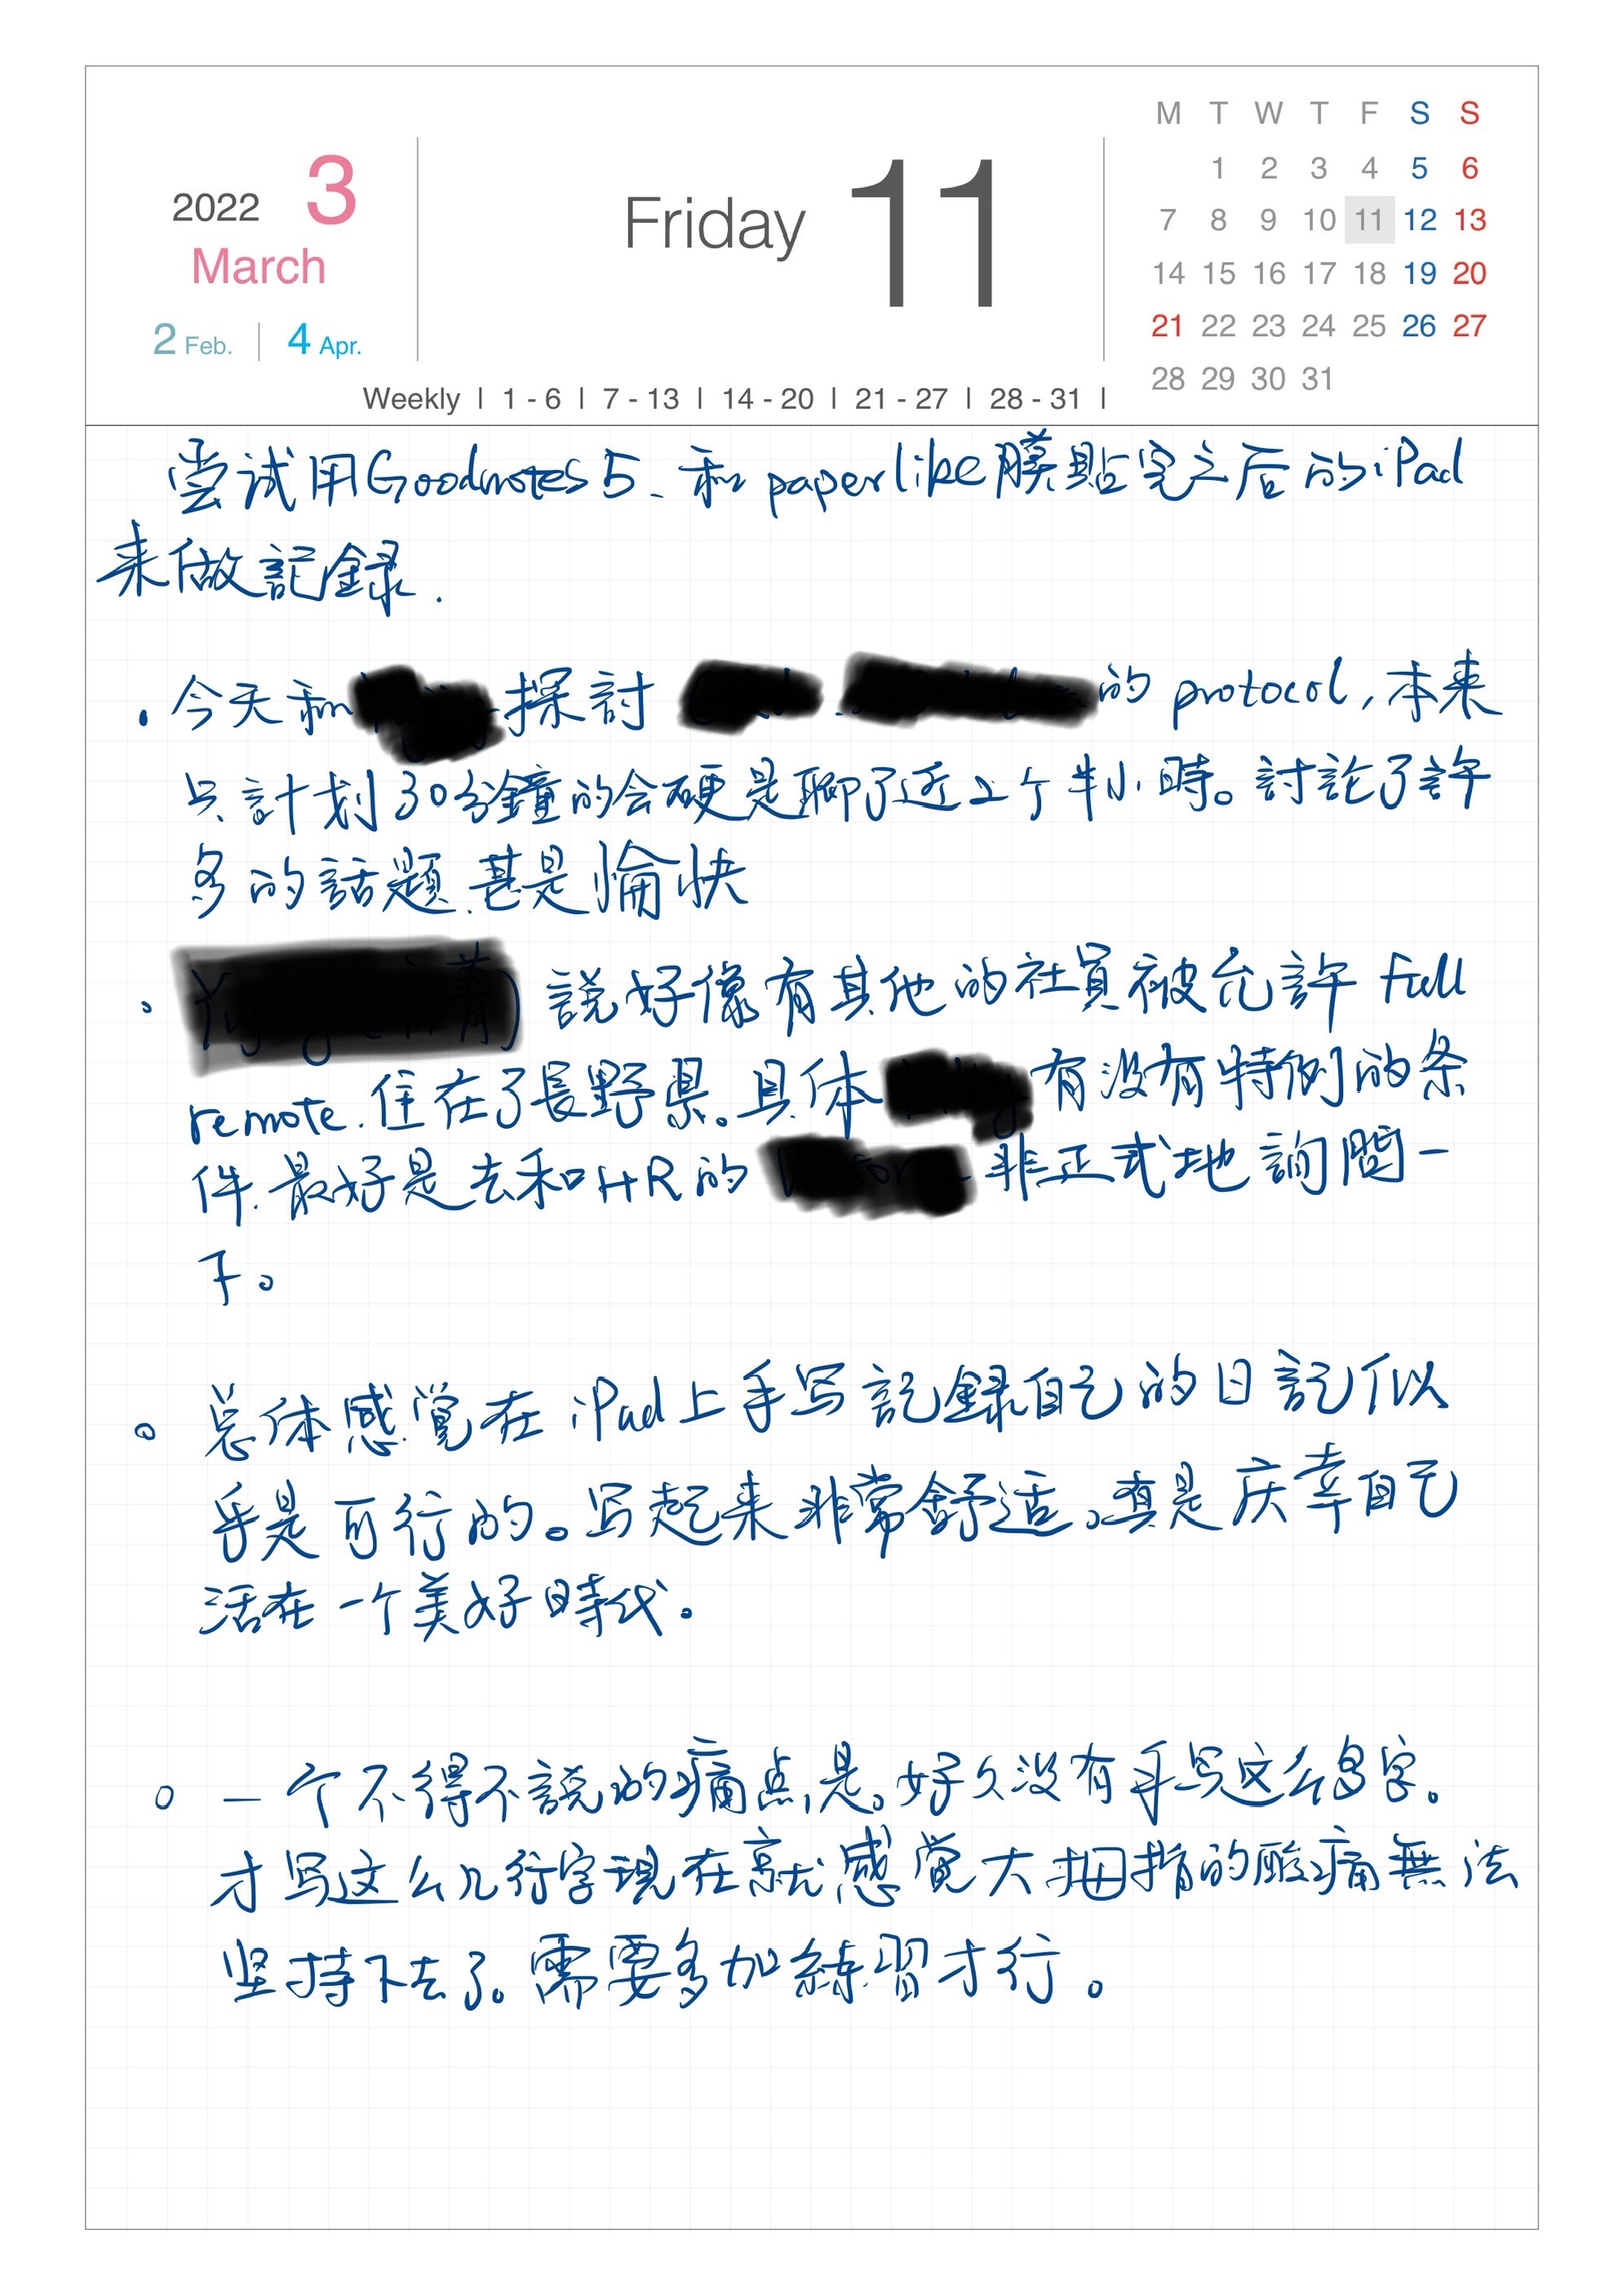 M T W T F S S
2022 3
March
2 Feb. | 4 Apr.
Friday 11
1 2 3 4 5 6
7 8 9 10 11 12 13
14 15 16 17 18 19 20
21 22 23 24 25 26 27
28 29 30 31
Weekly | 1 - 6 | 7 - 13 | 14 - 20 | 21 - 27 | 28 - 31 |
尝试用Goodnotes5、和paperlike膜贴完之后的iPad
来做記録.
• 今天和 探討 的 protocol,本来
只計划30分鐘的会硬是聊了近2个半小時。討論了許
多的話題.甚是愉快
。 説好像有其他的社員被允許 Full
remote.住在了長野県。具体 有没有特例的条
件.最好是去和HR的 非正式地詢問一
下。
。 总体感覚在 iPad上手写記録自己的日記似
乎是可行的。写起来非常舒适,真是庆幸自己
活在一个美好時代。
。 一个不得不説的痛点,是。好久没有手写这么多字。
才写这么几行字現在就感覚大拇指的酸痛無法
坚持下去了。需要多加練習才行。